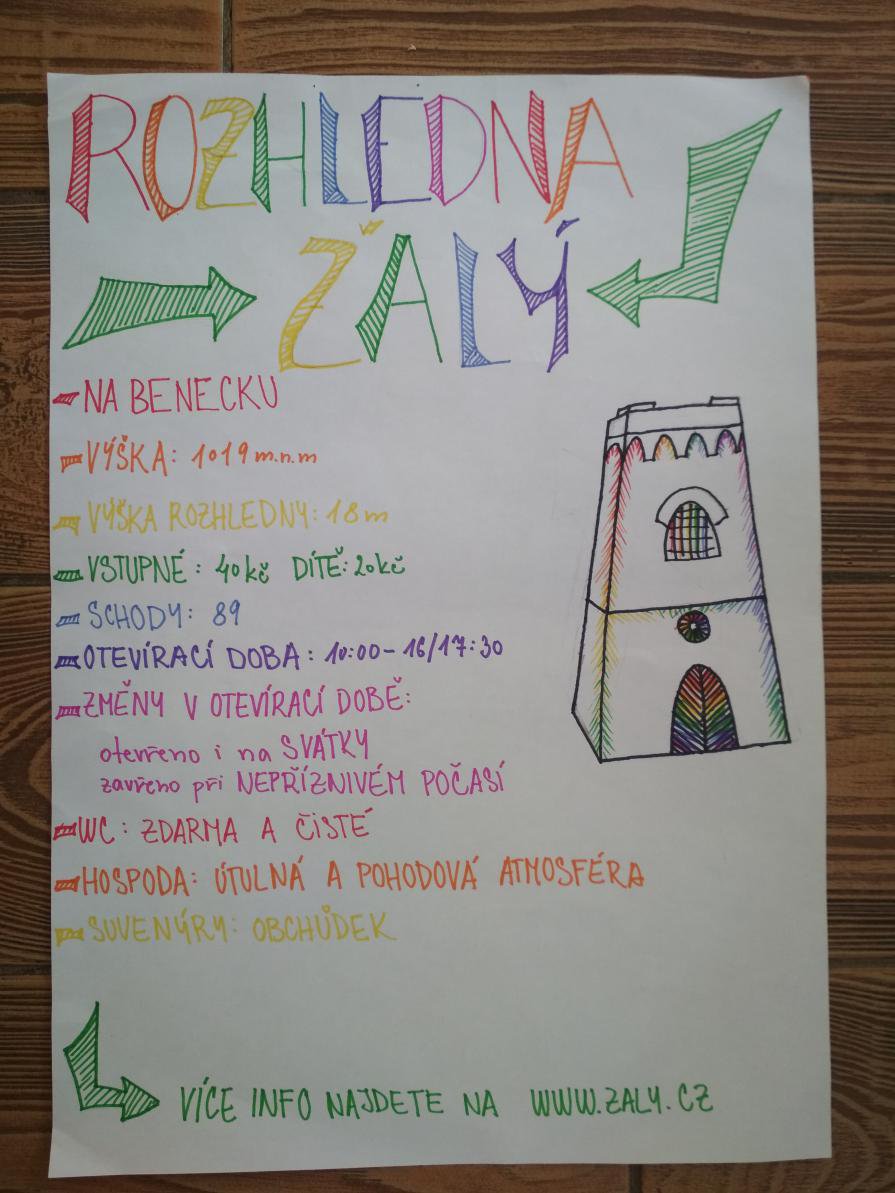 ROZHLEDNA
ŽALÝ
NA BENECKU
VÝŠKA: 1019 m.n.m
VÝŠKA ROZHLEDNY: 18m
VSTUPNÉ: 40kč DÍTĚ: 20kč
SCHODY: 89
OTEVÍRACÍ DOBA: 10:00-16/17:30
ZMĚNY V OTEVÍRACÍ DOBĚ:
otevřeno i na SVÁTKY
zavřeno při NEPŘÍZNIVÉM POČASÍ
WC: ZDARMA A ČISTÉ
HOSPODA: ÚTULNÁ A POHODOVÁ ATMOSFÉRA
SUVENÝRY: OBCHŮDEK
VÍCE INFO NAJDETE NA WWW.ZALY.CZ